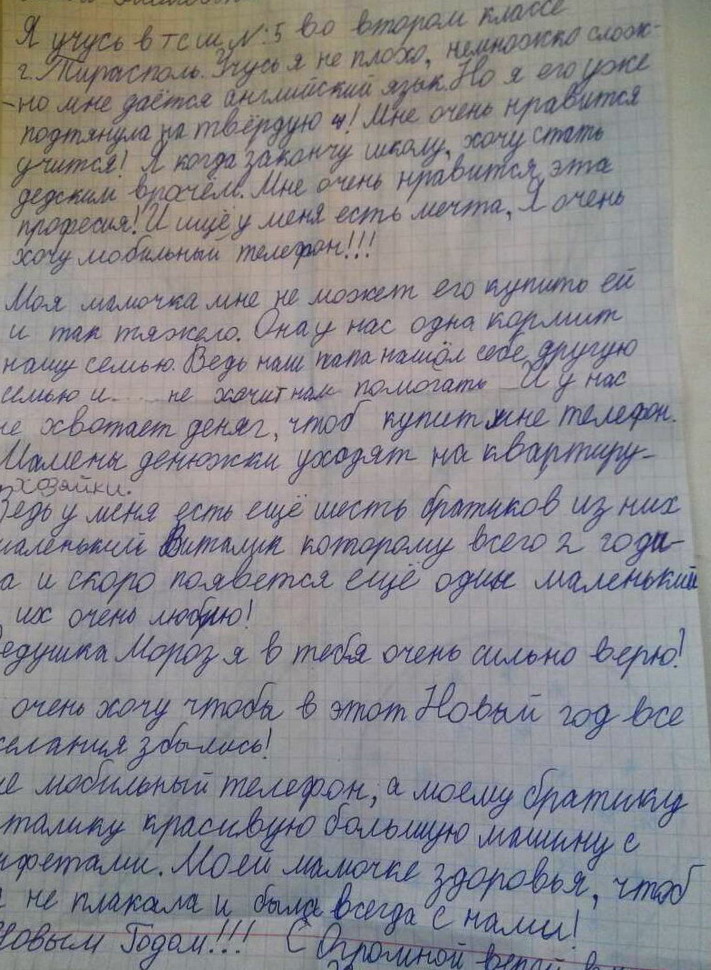 Я учусь в тсш №:5 во втором классе
г. Тирасполь. Учусь я не плохо, немножко слож-
-но мне даётся английский язык. Но я его уже
подтянула на твёрдую 4! Мне очень нравится
учится! Я когда закончу школу, хочу стать
дедским врачём. Мне очень нравится эта
професия! И ищё у меня есть мечта, Я очень
хочу мобильный телефон!!!
Моя мамочка мне не может его купить ей
и так тяжело. Она у нас одна кормит
нашу семью. Ведь наш папа нашёл себе другую
семью и .... не хочит нам помогать И у нас
не хвотает деняг, чтоб купит мне телефон.
Мамены денюжки уходят на квартиру-
хозяйки.
Ведь у меня есть ещё шесть братиков из них
маленький Виталик которому всего 2 годи-
а и скоро появется ещё один маленький
их очень люблю!
Дедушка Мороз я в тебя очень сильно верю!
очень хочу чтобы в этот Новый год все
желания збылись!
не мобильный телефон, а моему братику
талику красивую большую машину с
нфетами. Моей мамочке здоровья, чтоб
не плакала и была всегда с нами!
Новым Годом!!! С Огромной верой